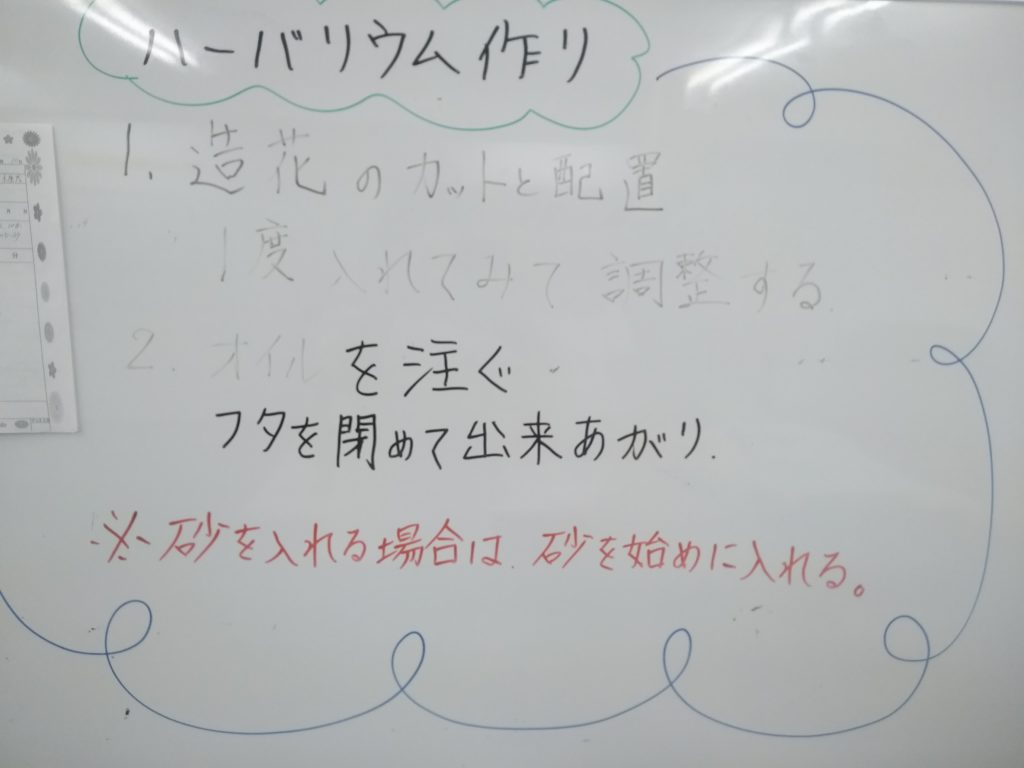 ハーバリウム作り
1. 造花のカットと配置
1度入れてみて調整する.
2. オイルを注ぐ
フタを閉めて出来あがり.
※砂を入れる場合は、砂を始めに入れる。